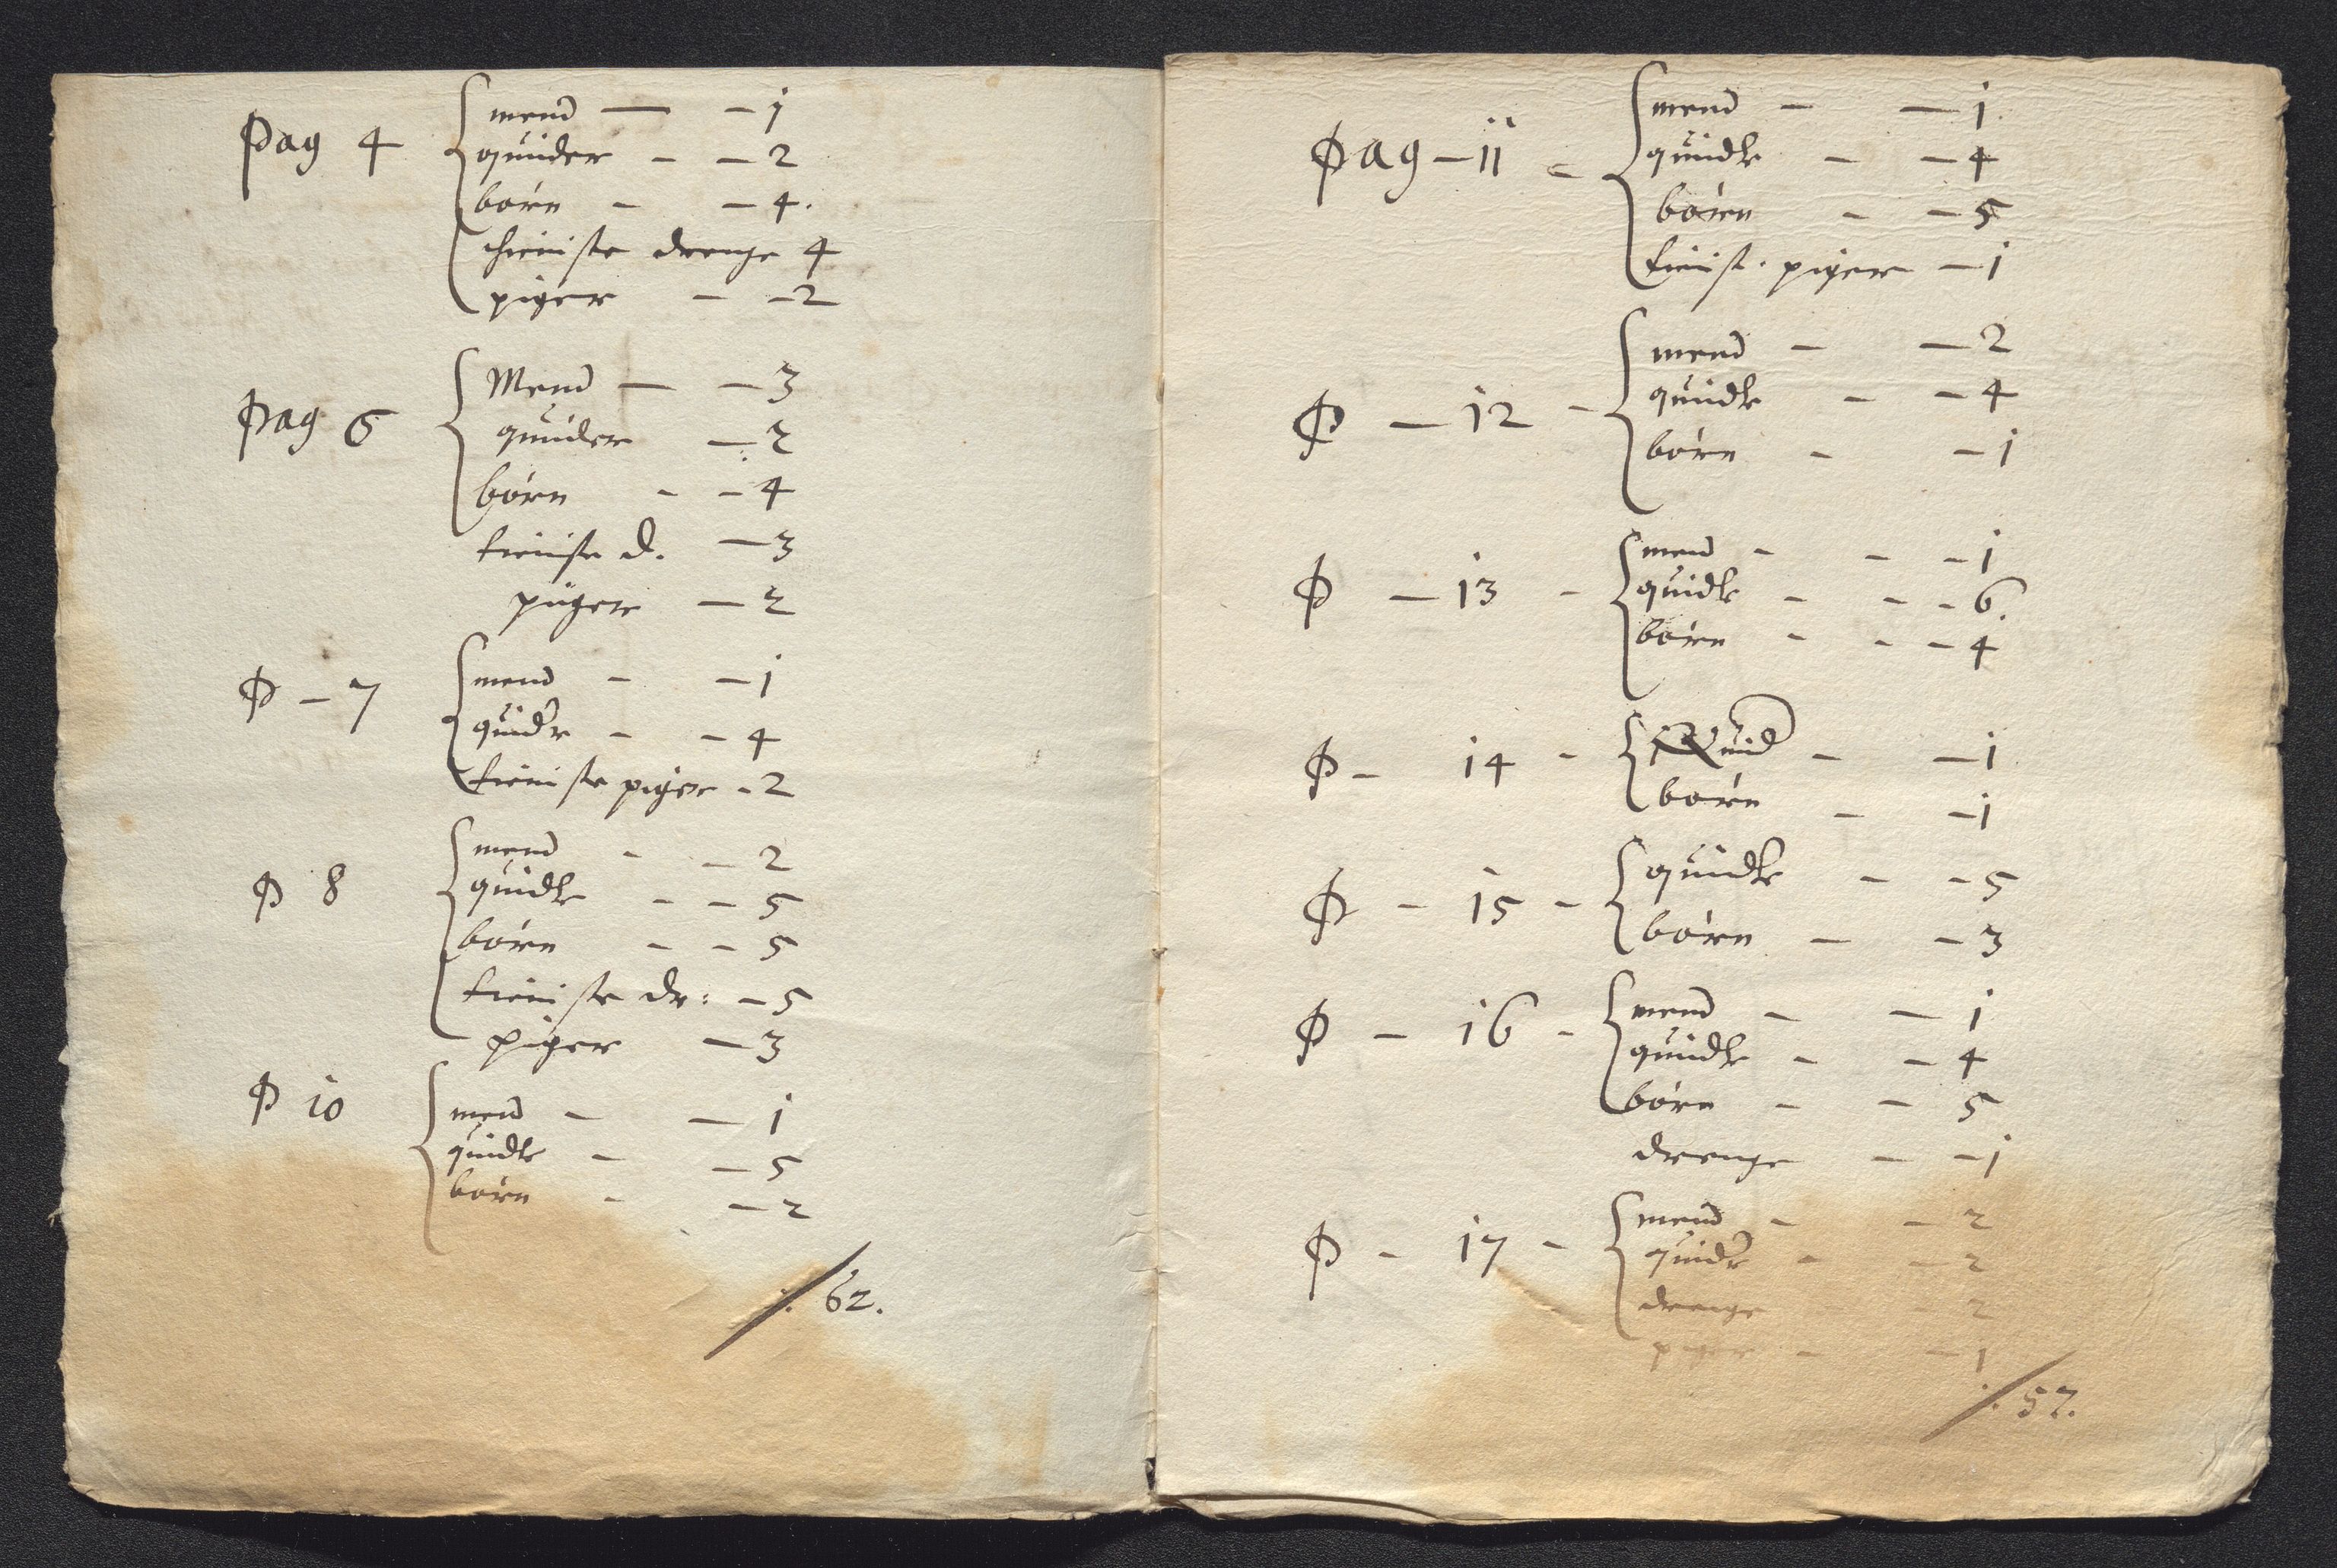 Pag 4
mend — - 1
quinder - - 2
börn - - 4.
thieniste drenge 4
piger - - 2
Pag 6
Mend — - 3
quinder — 2
börn - - 4
tieniste d. — 3
piiger — 2
P - 7
mend - - 1
quindr - - 4
tieniste piger - 2
P 8
mend - - 2
quidr - - 5
börn - - 5
tieniste dr: - 5
piger — 3
P 10
mend - — 1
quidr - - 5
börn - - 2
./. 62.
Pag - 11 -
mend - — 1
quidr - - 4
börn - - 5
tienist. piger - 1
P — 12 -
mend - — 2
quidr - - 4
börn - - 1
P — 13 -
mend - - - 1
quidr - - - 6.
börn - - - 4
P - 14 -
Quid - - 1
börn - - 1
P - 15 -
quidr - - 5
börn - - 3
P - 16 -
mend - - 1
quidr - - 4
börn - - 5
drenge - - 1
P - 17 -
mend - - 2
quindr - - 2
drenge - - 2
piger - - 1
./. 57.